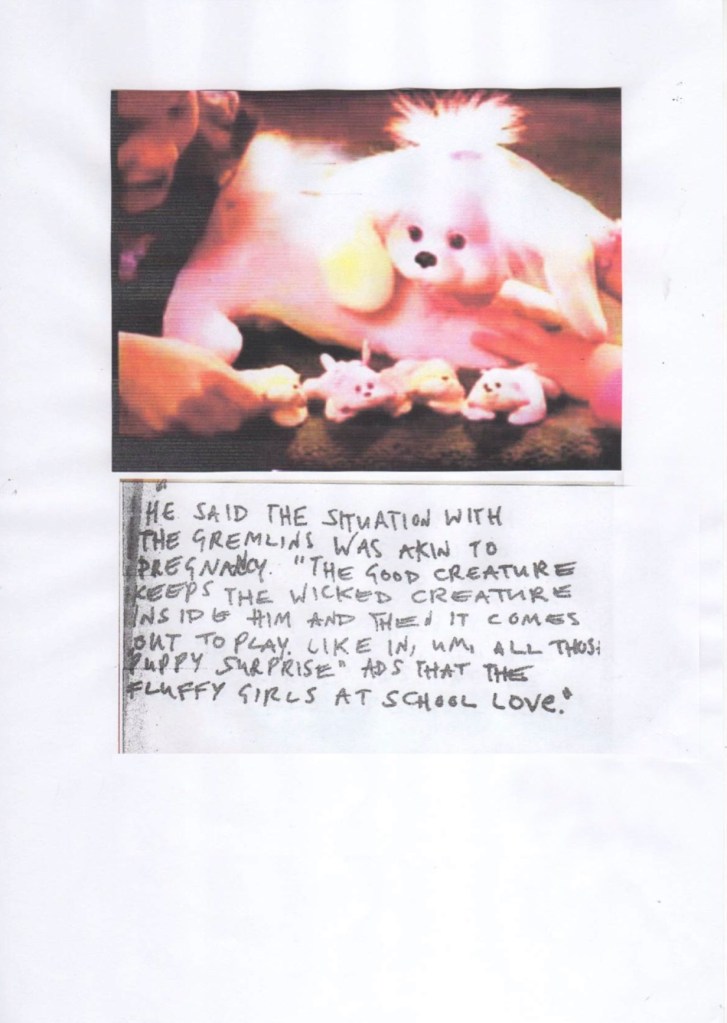 "HE SAID THE SITUATION WITH
THE GREMLINS WAS AKIN TO
PREGNANCY. "THE GOOD CREATURE
KEEPS THE WICKED CREATURE
INSIDE HIM AND THEN IT COMES
OUT TO PLAY. LIKE IN, UM, ALL THOSE
PUPPY SURPRISE" ADS THAT THE
FLUFFY GIRLS AT SCHOOL LOVE."